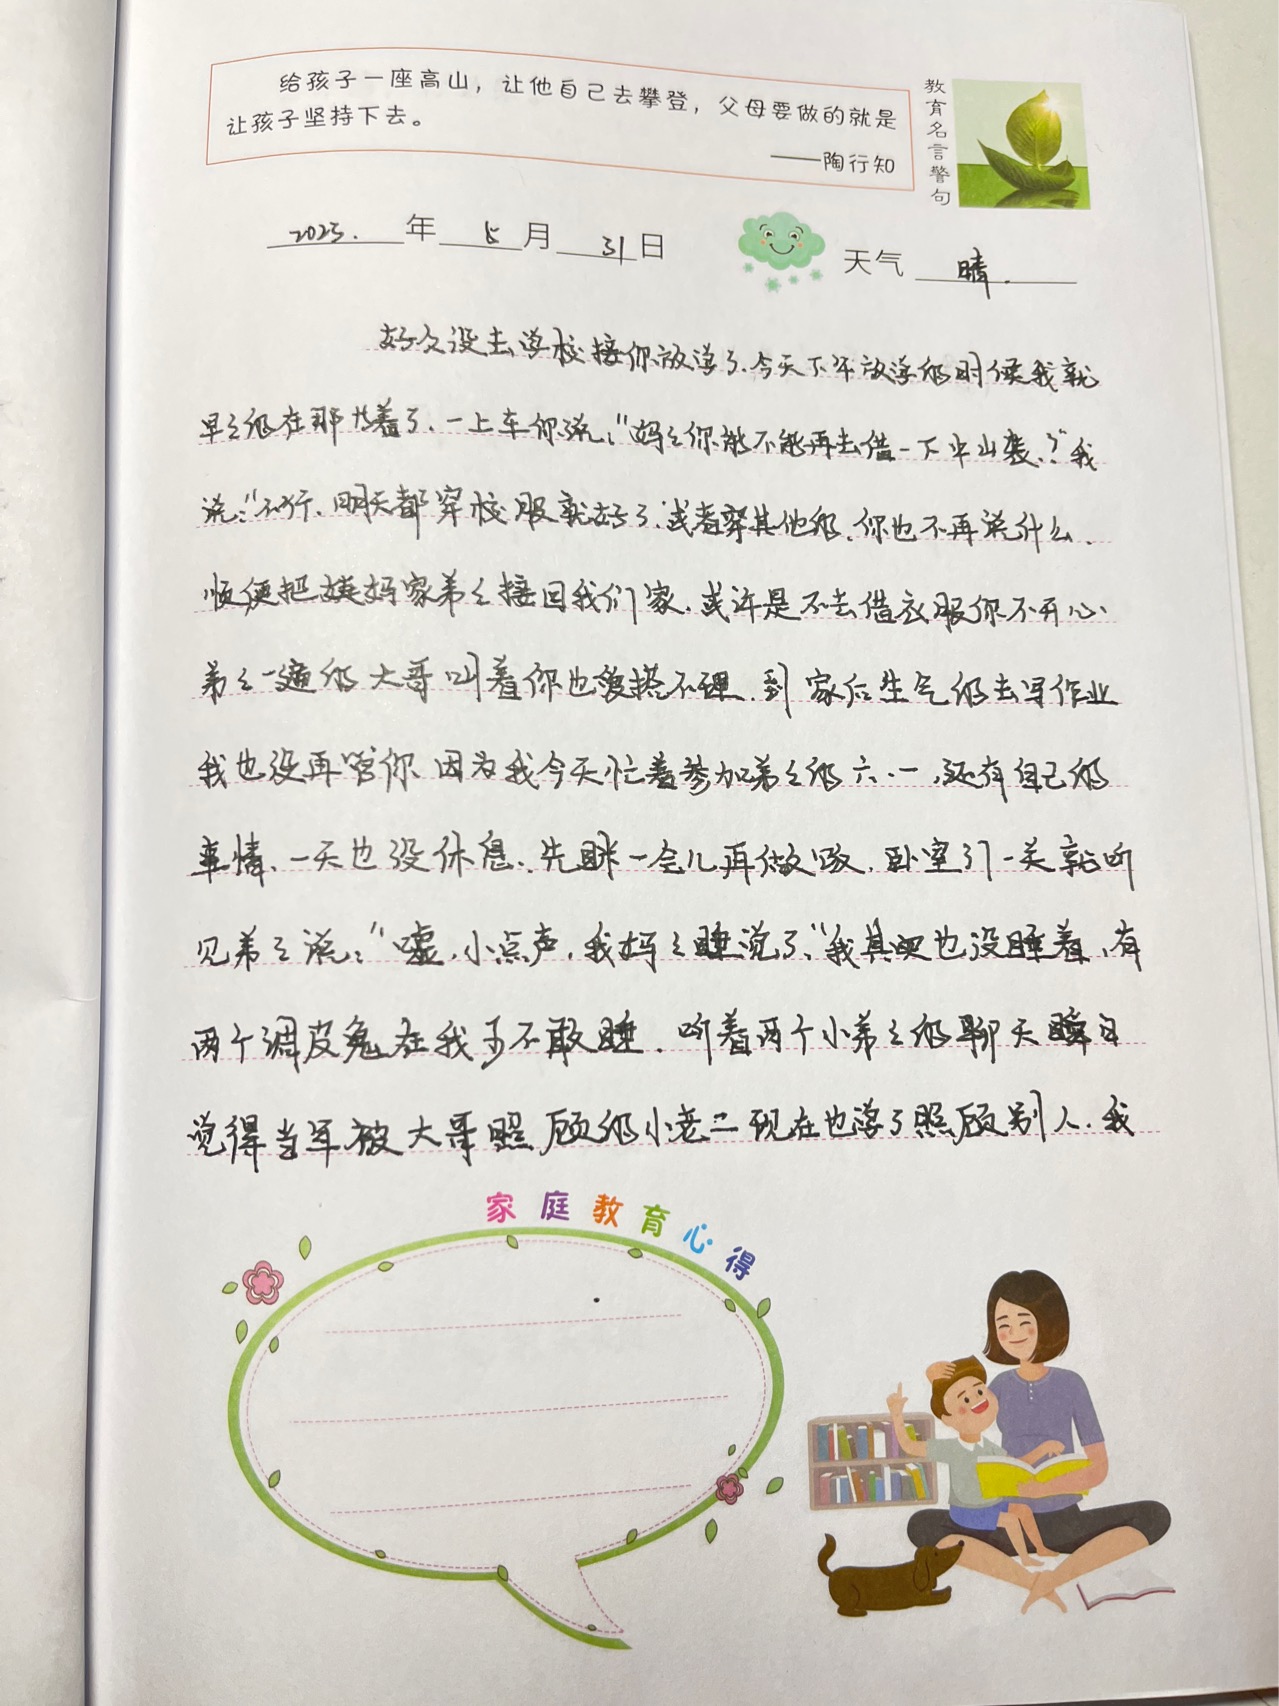 给孩子一座高山，让他自己去攀登，父母要做的就是
让孩子坚持下去。
——陶行知
教育名言警句
2023.年5月31日
天气 晴.
好久没去学校接你放学了.今天下午放学的时候我就
早早的在那 着了.一上车你说："妈妈你能不能再去借一下中山装.?"我
说："不行.明天都穿校服就好了.或者穿其他的.你也不再说什么.
顺便把姨妈家弟弟接回我们家.或许是不去借衣服你不开心.
弟弟一遍的大哥叫着你也爱搭不理.到家后生气的去写作业
我也没再管你 因为我今天忙着参加弟弟的六.一.还有自己的
事情.一天也没休息.先眯一会儿再做饭.卧室门一关就听
见弟弟说："嘘.小点声.我妈妈睡觉了."我其实也没睡着.有
两个调皮鬼在我才不敢睡.听着两个小弟弟的聊天瞬间
觉得当年被大哥照顾的小老二现在也学了照顾别人.我
家庭教育心得